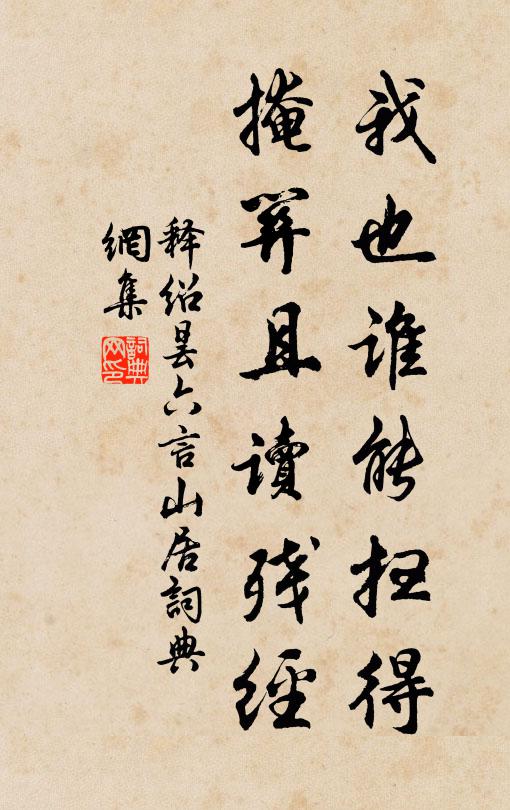 我也谁能扫得
掩关且读残經
释绍昙六言山居詞典
網集
詞典
网印